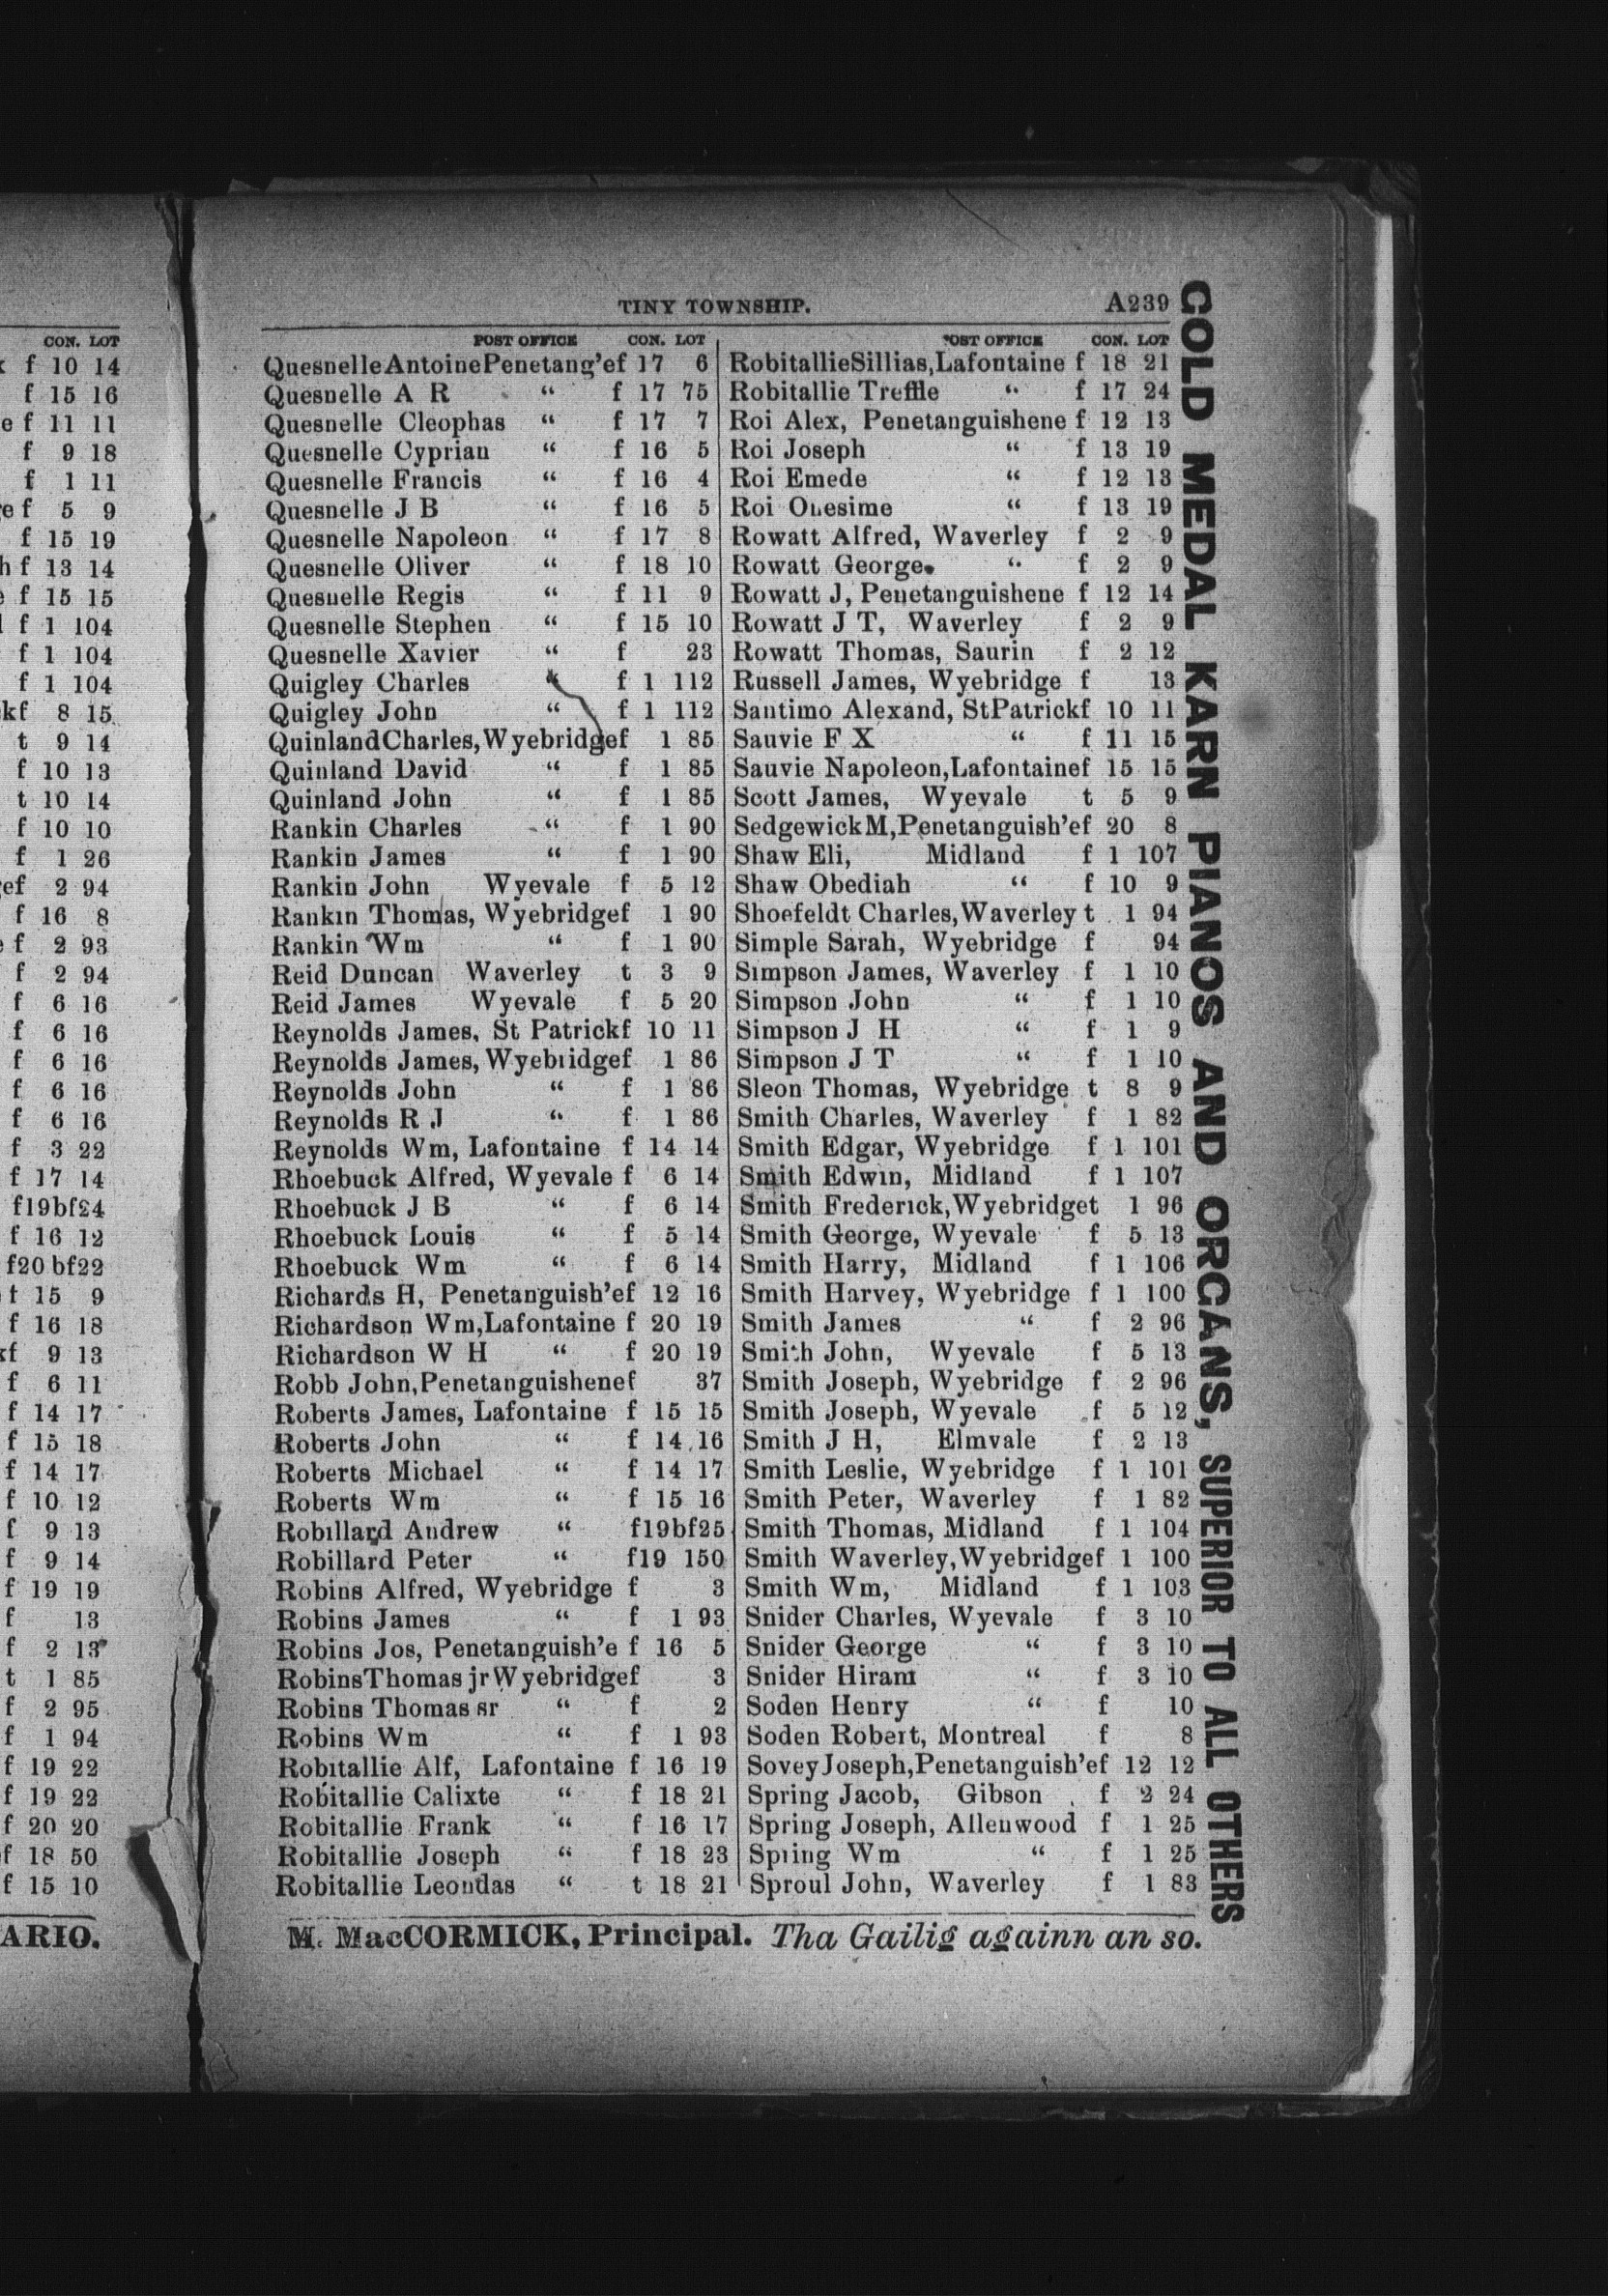 CON. LOT
f 10 14
f 15 16
e f 11 11
f 9 18
f 1 11
e f 5 9
f 15 19
h f 13 14
f 15 15
f 1 104
f 1 104
f 1 104
kf 8 15
t 9 14
f 10 13
t 10 14
f 10 10
f 1 26
ef 2 94
f 16 8
f 2 93
f 2 94
f 6 16
f 6 16
f 6 16
f 6 16
f 6 16
f 3 22
f 17 14
f19bf24
f 16 12
f20 bf22
t 15 9
f 16 18
f 9 13
f 6 11
f 14 17
f 15 18
f 14 17
f 10 12
f 9 13
f 9 14
f 19 19
f 13
f 2 13
t 1 85
f 2 95
f 1 94
f 19 22
f 19 22
f 20 20
f 18 50
f 15 10
ARIO.
TINY TOWNSHIP. A239
POST OFFICE CON. LOT
QuesnelleAntoinePenetang'ef 17 6
Quesnelle A R “ f 17 75
Quesnelle Cleophas “ f 17 7
Quesnelle Cyprian “ f 16 5
Quesnelle Francis “ f 16 4
Quesnelle J B “ f 16 5
Quesnelle Napoleon “ f 17 8
Quesnelle Oliver “ f 18 10
Quesnelle Regis “ f 11 9
Quesnelle Stephen “ f 15 10
Quesnelle Xavier “ f 23
Quigley Charles “ f 1 112
Quigley John “ f 1 112
QuinlandCharles,Wyebridgef 1 85
Quinland David “ f 1 85
Quinland John “ f 1 85
Rankin Charles “ f 1 90
Rankin James “ f 1 90
Rankin John Wyevale f 5 12
Rankin Thomas, Wyebridgef 1 90
Rankin Wm “ f 1 90
Reid Duncan Waverley t 3 9
Reid James Wyevale f 5 20
Reynolds James, St Patrickf 10 11
Reynolds James, Wyebridgef 1 86
Reynolds John “ f 1 86
Reynolds R J “ f 1 86
Reynolds Wm, Lafontaine f 14 14
Rhoebuck Alfred, Wyevale f 6 14
Rhoebuck J B “ f 6 14
Rhoebuck Louis “ f 5 14
Rhoebuck Wm “ f 6 14
Richards H, Penetanguish'ef 12 16
Richardson Wm,Lafontaine f 20 19
Richardson W H “ f 20 19
Robb John,Penetanguishenef 37
Roberts James, Lafontaine f 15 15
Roberts John “ f 14 16
Roberts Michael “ f 14 17
Roberts Wm “ f 15 16
Robillard Andrew “ f19bf25
Robillard Peter “ f19 150
Robins Alfred, Wyebridge f 3
Robins James “ f 1 93
Robins Jos, Penetanguish'e f 16 5
RobinsThomas jrWyebridgef 3
Robins Thomas sr “ f 2
Robins Wm “ f 1 93
Robitallie Alf, Lafontaine f 16 19
Robitallie Calixte “ f 18 21
Robitallie Frank “ f 16 17
Robitallie Joseph “ f 18 23
Robitallie Leondas “ t 18 21
POST OFFICE CON. LOT
RobitallieSillias,Lafontaine f 18 21
Robitallie Treffle “ f 17 24
Roi Alex, Penetanguishene f 12 13
Roi Joseph “ f 13 19
Roi Emede “ f 12 13
Roi Onesime “ f 13 19
Rowatt Alfred, Waverley f 2 9
Rowatt George. “ f 2 9
Rowatt J, Penetanguishene f 12 14
Rowatt J T, Waverley f 2 9
Rowatt Thomas, Saurin f 2 12
Russell James, Wyebridge f 13
Santimo Alexand, StPatrickf 10 11
Sauvie F X “ f 11 15
Sauvie Napoleon,Lafontainef 15 15
Scott James, Wyevale t 5 9
SedgewickM,Penetanguish'ef 20 8
Shaw Eli, Midland f 1 107
Shaw Obediah “ f 10 9
Shoefeldt Charles,Waverley t 1 94
Simple Sarah, Wyebridge f 94
Simpson James, Waverley f 1 10
Simpson John “ f 1 10
Simpson J H “ f 1 9
Simpson J T “ f 1 10
Sleon Thomas, Wyebridge t 8 9
Smith Charles, Waverley f 1 82
Smith Edgar, Wyebridge f 1 101
Smith Edwin, Midland f 1 107
Smith Frederick,Wyebridget 1 96
Smith George, Wyevale f 5 13
Smith Harry, Midland f 1 106
Smith Harvey, Wyebridge f 1 100
Smith James “ f 2 96
Smith John, Wyevale f 5 13
Smith Joseph, Wyebridge f 2 96
Smith Joseph, Wyevale f 5 12
Smith J H, Elmvale f 2 13
Smith Leslie, Wyebridge f 1 101
Smith Peter, Waverley f 1 82
Smith Thomas, Midland f 1 104
Smith Waverley,Wyebridgef 1 100
Smith Wm, Midland f 1 103
Snider Charles, Wyevale f 3 10
Snider George “ f 3 10
Snider Hiram “ f 3 10
Soden Henry “ f 10
Soden Robert, Montreal f 8
SoveyJoseph,Penetanguish'ef 12 12
Spring Jacob, Gibson f 2 24
Spring Joseph, Allenwood f 1 25
Spring Wm “ f 1 25
Sproul John, Waverley f 1 83
M. MacCORMICK, Principal. Tha Gailig againn an so.
GOLD MEDAL KARN PIANOS AND ORGANS, SUPERIOR TO ALL OTHERS